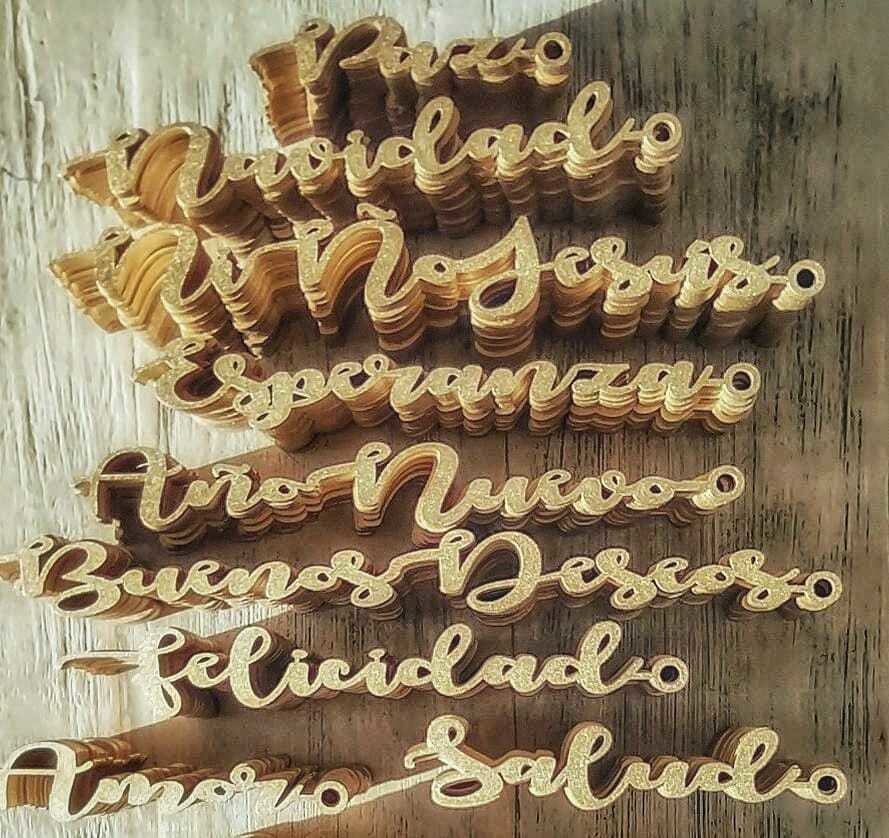 Paz
Navidad
Niño Jesús
Esperanza
Año Nuevo
Buenos Deseos
felicidad
Amor Salud